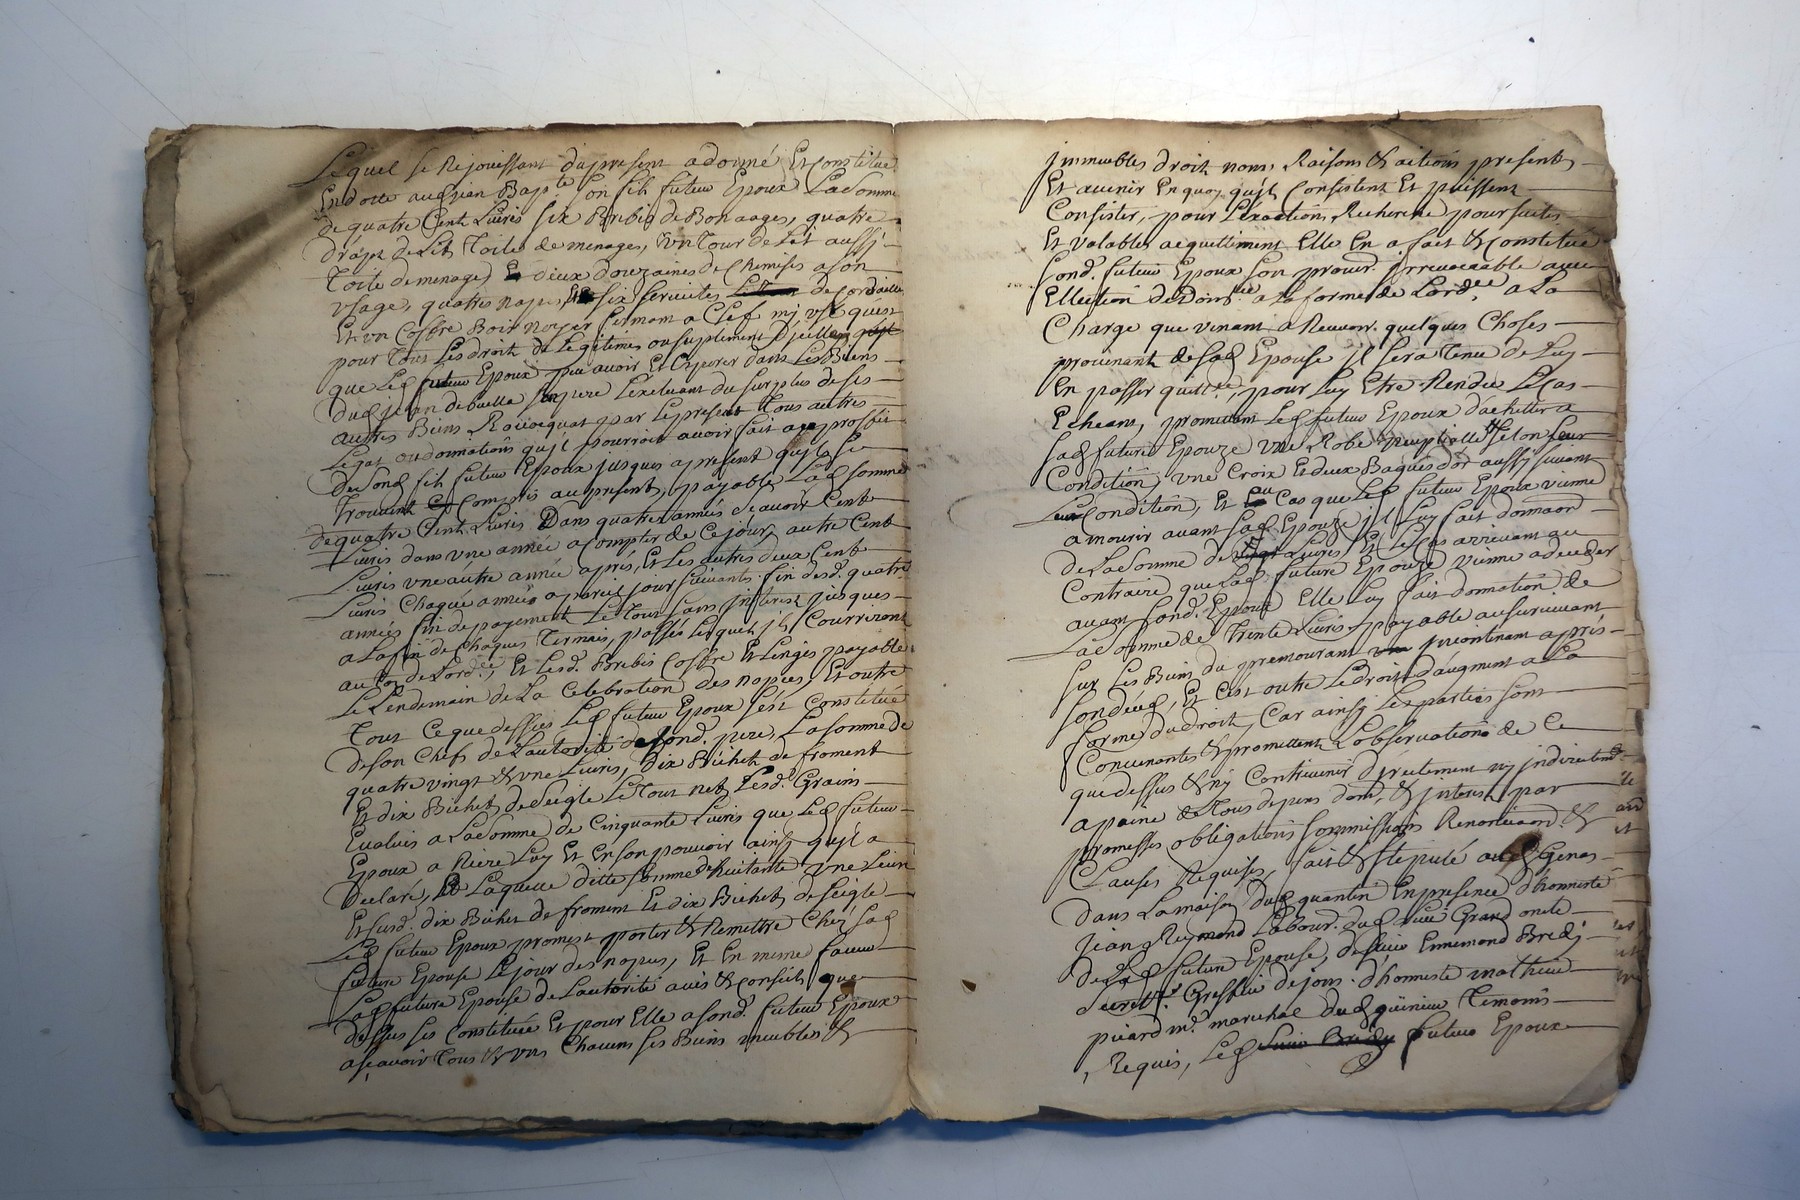 Lequel se Rejouissant dupresent adonné Et Constitué
En dotte audjean Bapte son fils futeur Epoux La somme
de quatre Cent Livres six Brebis de Bon aages, quatre
draps de Lit Toile de menages, Un Tour de Lit aussi
Toile de menage, deux douzaines de Chemises ason
usage, quatre napes, six serviettes de Cordailles
Et un Coffre Bois noyer fermant a Clef my usé quest
pour Tous Les droits de Legitimes ou suplement d'jcelle
que Led Epoux peu avoir Et Esperer dans Les Biens
dud jean debuelle son pere Lexcluant du surplus de ses
autres Biens Revocquant par Le present Tous autres
Legat ou donnations qujl pourroit avoir fait au proffit
desond fils futeur Epoux jusques apresent qujls se
Trouvent Compris au present, payable Lad somme
de quatre Cent Livres Dans quatre années Scavoir Cent
Livres dans une année a Compter de Ce jour, autre Cent
Livres une autre année après, Et Les autres deux Cent
Livres Chaque année a pareil jour suivants fin desd. quatre
années fin de payement Le Tout sans jnterest jusques
a La fin de Chaques Termes, passés Lesquels jls Courriront
au Cor de Lordce, Et Lesd. Brebis Coffre Et Linges payable
Le Lendemain de La Celebration des nopces, Et outre
Tout Ce que dessus Led futeur Epoux sest Constitué
de son Chefs de Lautorité desond. pere, La somme de
quatre vingt & une Livres, dix Bichets de froment
Et dix Bichets de Seigle Le Tout net Lesd. Grains
Evalués a La somme de Cinquante Livres que Led futeur
Epoux a Riere Luy Et En son pouvoir ainsy qujl a
declaré, Laquelle ditte somme de huitante une Livre
Et susd. dix Bichets de froment Et dix Bichets de Seigle
Led futeur Epoux promet porter & Remettre Chés sad
future Epouse Le jour des nopces, Et En meme faveur
Lad future Epouse de Lautorité avis & Conseils que
dessus ses Constituée Et pour Elle a sond. futeur Epoux
a sçavoir Tous & uns Chacuns ses Biens meubles &
jmmeubles droit noms Raisons & actions presents
Et avenir En quoy qujls Consistent Et puissent
Consister, pour Lexaction, Recherche poursuites
Et Valables acquittement Elle En a fait & Constitué
sond. futeur Epoux son procur. jrrevocable avec
Ellection de Domlle a La forme de Lordce, a La
Charge que venant a Recevoir quelques Choses
provenant de sad Epouse jl sera Tenu de Luy
En passer quittce, pour Luy Etre Rendue Le Cas
Echeans, promettant Led futeur Epoux d'achetter a
sad future Epouze une Robe nuptialle selon
Condition, une Croix Et deux Bagues d'or aussy suivant
Condition, Et Cas que Led futeur Epoux vienne
a mourir avant sad Epouze jl Luy fait donnaon
de La somme de Livres, Et Le Cas arrivant au
Contraire que Lad future Epouze vienne a deceder
avant sond. Epoux Elle Luy fait donnation de
La somme de Trente Livres payable au survivant
sur Les Biens du premourant jncontinent après
son décéd, Et C'est outre Le droit d'augment a La
forme du droit, Car ainsy Les parties sont
Convenantes & promettent Lobservations de Ce
que dessus & ny Contrevenir directement ny indirectemt
a peine de Tous depens dom, & jnterest par
promesses obligations sommissions Renonciaons &
Clauses Requises, fait & stipulé aud Genas
dans La maison dud quantin En presence d'honneste
jean Reymond Labour. dud Lieu Grand oncle
de Lad future Epouse, de sieur Ennemond Bredy
Greffier de jons d'honneste mathieu
picard md. marechal dud Temoins
Requis, Led futeur Epoux